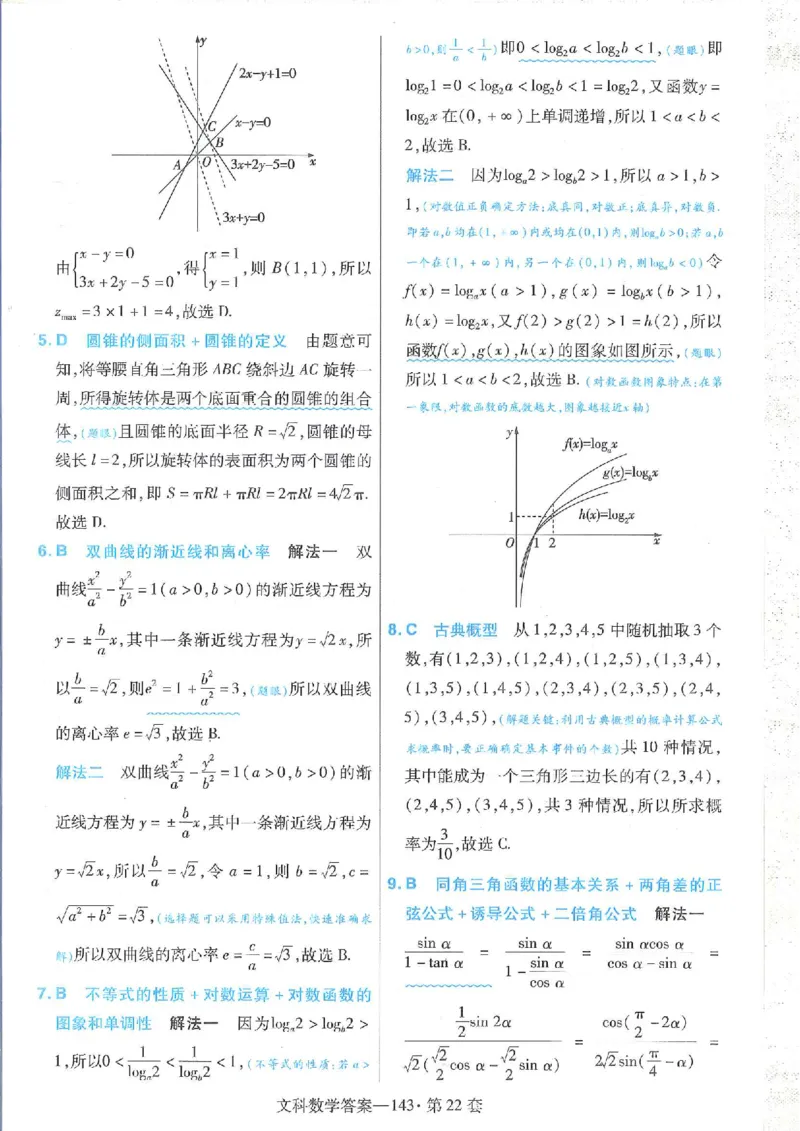 y
2x-y+1=0
x-y=0
C
B
A
O
3x+2y-5=0
x
3x+y=0
由{x-y=0, 3x+2y-5=0,得{x=1, y=1,则 B(1,1),所以
z_max=3×1+1=4,故选 D.
5.D 圆锥的侧面积+圆锥的定义 由题意可
知,将等腰直角三角形 ABC 绕斜边 AC 旋转一
周,所得旋转体是两个底面重合的圆锥的组合
体,(题眼)且圆锥的底面半径 R=√2,圆锥的母
线长 l=2,所以旋转体的表面积为两个圆锥的
侧面积之和,即 S=πRl+πRl=2πRl=4√2π.
故选 D.
6.B 双曲线的渐近线和离心率 解法一 双
曲线x²/a²-y²/b²=1(a>0,b>0)的渐近线方程为
y=±b/a x,其中一条渐近线方程为y=√2x,所
以b/a=√2,则e²=1+b²/a²=3,(题眼)所以双曲线
的离心率 e=√3,故选 B.
解法二 双曲线x²/a²-y²/b²=1(a>0,b>0)的渐
近线方程为 y=±b/a x,其中一条渐近线方程为
y=√2x,所以b/a=√2,令 a=1,则 b=√2,c=
√(a²+b²)=√3,(选择题可以采用特殊值法,快速准确求
解)所以双曲线的离心率 e=c/a=√3,故选 B.
7.B 不等式的性质+对数运算+对数函数的
图象和单调性 解法一 因为log_a2>log_b2>
1,所以0<1/log_a2<1/log_b2<1,(不等式的性质:若 a>
b>0,则1/a<1/b)即0<log₂a<log₂b<1,(题眼)即
log₂1=0<log₂a<log₂b<1=log₂2,又函数y=
log₂x 在(0,+∞)上单调递增,所以 1<a<b<
2,故选 B.
解法二 因为log_a2>log_b2>1,所以 a>1,b>
1,(对数值正负确定方法:底真同,对数正;底真异,对数负.
即若a,b均在(1,+∞)内或均在(0,1)内,则log_ab>0;若a,b
一个在(1,+∞)内,另一个在(0,1)内,则log_ab<0)令
f(x)=log_ax(a>1),g(x)=log_bx(b>1),
h(x)=log₂x,又f(2)>g(2)>1=h(2),所以
函数f(x),g(x),h(x)的图象如图所示,(题眼)
所以 1<a<b<2,故选 B.(对数函数图象特点:在第
一象限,对数函数的底数越大,图象越接近x轴)
y
f(x)=log_ax
g(x)=log_bx
1
h(x)=log₂x
O 1 2 x
8.C 古典概型 从1,2,3,4,5 中随机抽取3个
数,有(1,2,3),(1,2,4),(1,2,5),(1,3,4),
(1,3,5),(1,4,5),(2,3,4),(2,3,5),(2,4,
5),(3,4,5),(解题关键:利用古典概型的概率计算公式
求概率时,要正确确定基本事件的个数)共 10 种情况,
其中能成为一个三角形三边长的有(2,3,4),
(2,4,5),(3,4,5),共 3 种情况,所以所求概
率为3/10,故选 C.
9.B 同角三角函数的基本关系+两角差的正
弦公式+诱导公式+二倍角公式 解法一
sin α/(1-tan α)=sin α/(1-sin α/cos α)=sin αcos α/(cos α-sin α)=
(1/2 sin 2α)/(√2(√2/2 cos α-√2/2 sin α))=cos(π/2-2α)/(2√2sin(π/4-α))=
文科数学答案—143·第 22 套